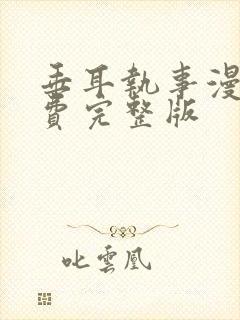 垂耳執事漫
費完整版
叱雲凰